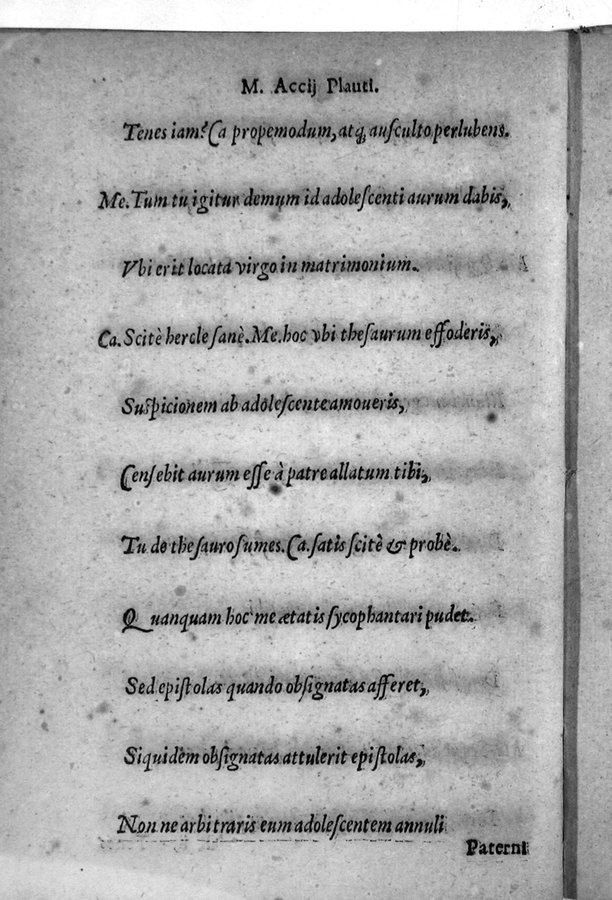 M. Accij Plauti.
Tenes iam? Ca propemodum, atq; auſculto perlubens.
Me. Tum tu igitur demum id adoleſcenti aurum dabis,
Vbi erit locata virgo in matrimonium.
Ca. Scitè hercle ſanè. Me. hoc vbi theſaurum effoderis,
Suſpicionem ab adoleſcente amoueris,
Cenſebit aurum eſſe à patre allatum tibi,
Tu de theſauro ſumes. Ca. ſatis ſcitè & probè.
Quanquam hoc me ætatis ſycophantari pudet.
Sed epiſtolas quando obſignatas afferet,
Siquidem obſignatas attulerit epiſtolas,
Non ne arbitraris eum adoleſcentem annuli
Paterni